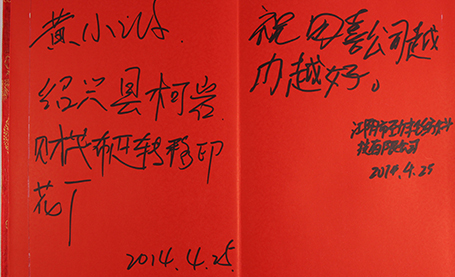 黄小
绍兴县柯岩
财茂布匹转移印
花厂
2014.4.25.
祝田喜公司越
办越好。
江阴市
技有限公司
2014.4.25